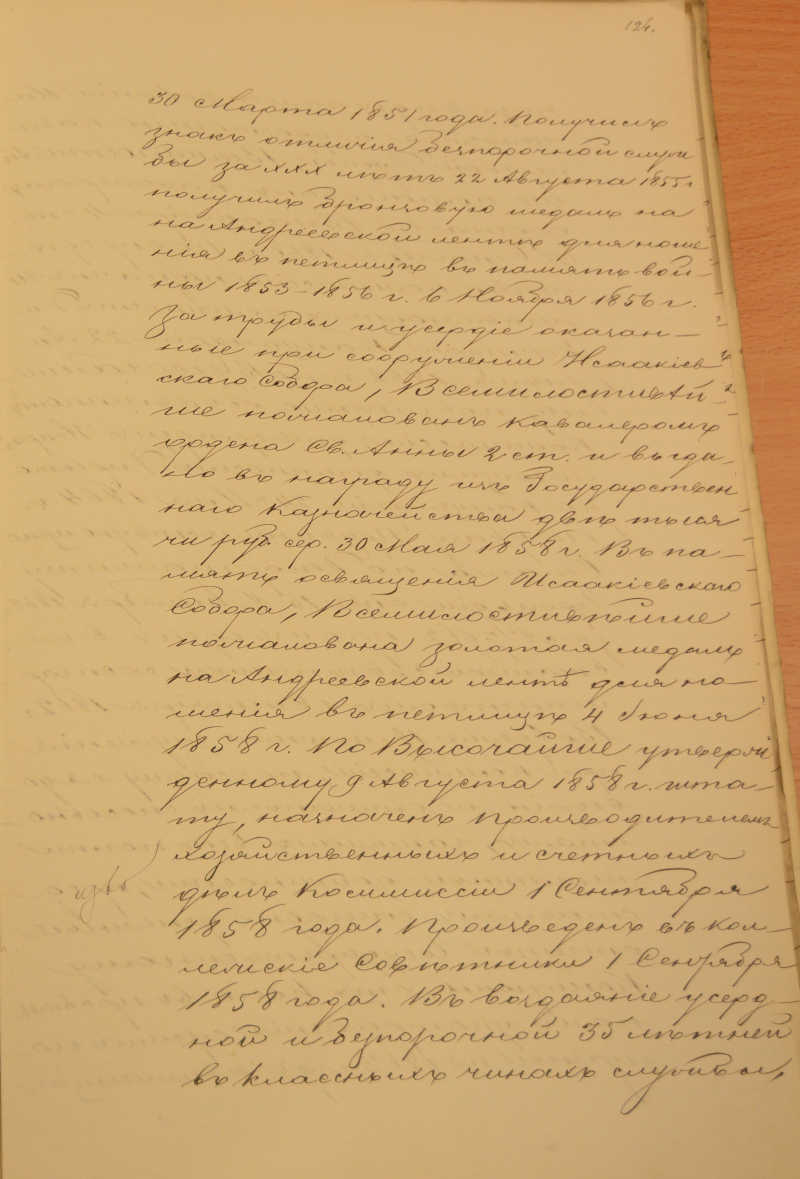 124.
30 Марта 1851 года. Получилъ
знакъ отличія безпорочной служ
бы за XXX лѣтъ 22 Августа 1855 г
получилъ бронзовую медаль на
на Андреевской лентѣ для ноше
нія въ петлицѣ въ память вой-
ны 1853-1856 г. 6 Ноября 1856 г.
За труды и усердіе оказан-
ные при сооруженіи Исаакіев
скаго Собора, Всемилостивѣй-
ше пожалованъ Кавалеромъ
ордена Св. Анны 2 ст. и выда-
но въ награду изъ Государствен
наго Казначейства двѣ тыся
чи руб. сер. 30 Мая 1858 г. Въ па-
мять освященія Исаакіевскаго
Собора, Всемилостивѣйше
пожалована золотая медаль
на Андреевской лентѣ для но-
шенія въ петлицѣ 4 Іюня
1858 г. По Высочайше утверж
денному 9 Августа 1858 г. шта-
ту, назначенъ Производителемъ
хозяйственныхъ и счетныхъ
дѣлъ Коммиссіи 1 Сентября
1858 года. Произведенъ въ кол-
лежскіе Совѣтники 1 Сентября
1858 года. Въ воздаяніе усерд-
ной и безпорочной 35 лѣтней
въ классныхъ чинахъ службы,